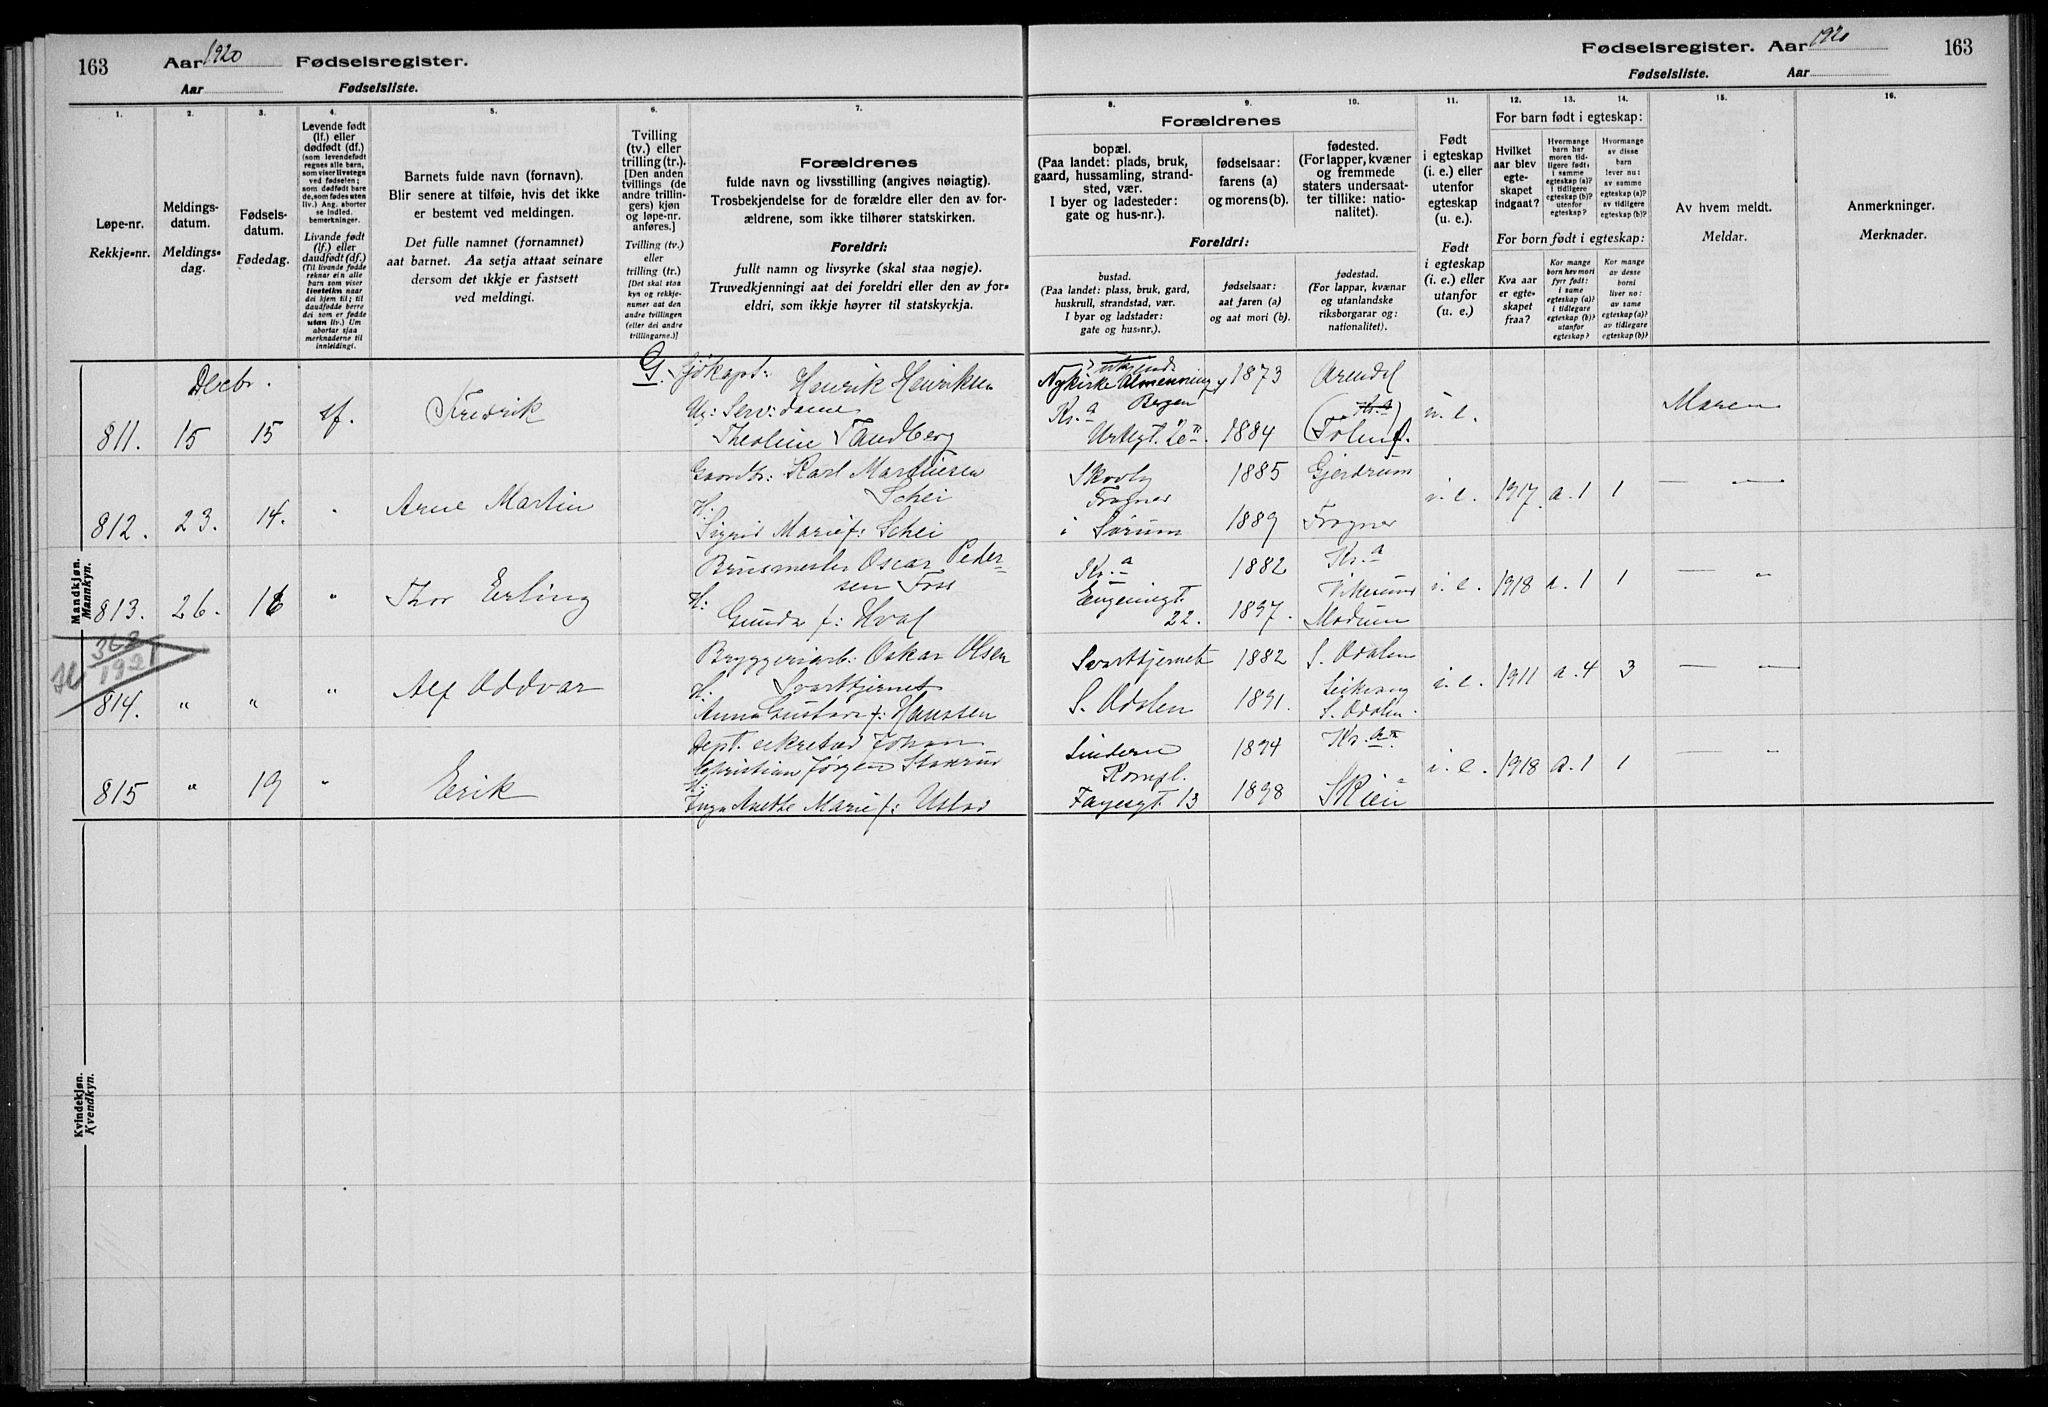 163
Aar 1920
Fødselsregister.
Aar
Fødselsliste.
Fødselsregister. Aar 1920
163
Fødselsliste.
Aar
1.
Løpe-nr.
Rekkje-nr.
2.
Meldings-
datum.
Meldings-
dag.
3.
Fødsels-
datum.
Fødedag.
4.
Levende født
(lf.) eller
dødfødt (df.)
(som levendefødt
regnes alle barn,
som viser livstegn
ved fødselen;
som dødfødt bare
de, som er født
uten liv.) Ang. aborter
se indled.
bemerkninger.
Livande født
(lf.) eller
daudfødt (df.)
(Til livande fødde
reknar ein alle
barn som viser
livsteikn naar
dei kjem til; til
daudfødde berre
dei som er fødde
utan liv.) Um
abortar sjaa
merknaderne til
innleidingi.
5.
Barnets fulde navn (fornavn).
Blir senere at tilføie, hvis det ikke
er bestemt ved meldingen.
Det fulle namnet (fornamnet)
aat barnet. Aa setja attaat seinare
dersom det ikkje er fastsett
ved meldingi.
6.
Tvilling
(tv.) eller
trilling (tr.).
[Den anden
tvillings (de
andre trillin-
gers) kjøn
og løpe-nr.
anføres.]
Tvilling (tv.)
eller
trilling (tr.)
[Det skal staa
kyn og rekkje-
numer aat den
andre tvillingen
(eller dei andre
trillingarne.)]
7.
Forældrenes
fulde navn og livsstilling (angives nøiagtig).
Trosbekjendelse for de forældre eller den av for-
ældrene, som ikke tilhører statskirken.
Foreldri:
fullt namn og livsyrke (skal staa nøgje).
Truvedkjenningi aat dei foreldri eller den av for-
eldri, som ikkje høyrer til statskyrkja.
8.
Forældrenes
bopæl.
(Paa landet: plads, bruk,
gaard, hussamling, strand-
sted, vær.
I byer og ladesteder:
gate og hus-nr.).
Foreldri:
bustad.
(Paa landet: plass, bruk, gard,
huskrull, strandstad, vær.
I byar og ladstader:
gate og hus-nr.).
9.
fødselsaar:
farens (a)
og morens (b).
fødselsaar:
aat faren (a)
og aat mori (b).
10.
fødested.
(For lapper, kvæner
og fremmede
staters undersaat-
ter tillike: natio-
nalitet).
fødestad.
(For lappar, kvænar
og utanlandske
riksborgarar og:
nationalitet).
11.
Født
i egteskap
(i. e.) eller
utenfor
egteskap
(u. e.).
Født
i egteskap
(i. e.) eller
utanfor
(u. e.).
For barn født i egteskap:
12.
Hvilket
aar blev
egte-
skapet
indgaat?
13.
Hvormange
barn har
moren tid-
ligere født:
i samme
egteskap (a)?
i tidligere
egteskap (b)?
utenfor
egteskap?
14.
Hvormange
av disse
barn
lever nu:
av samme
egteskap (a)?
av tidligere
egteskap (b)?
For born født i egteskap:
Kva aar
er egte-
skapet
fraa?
Kor mange
born hev mori
fyrr født:
i same
egteskap (a)?
i tidlegare
egteskap (b)?
utanfor
egteskap?
Kor mange
av desse
borni
liver no:
av same
egteskap (a)?
av tidlegare
egteskap (b)?
15.
Av hvem meldt.
Meldar.
16.
Anmerkninger.
Merknader.
Mandkjøn.
Mannkyn.
Kvindekjøn.
Kvendkyn.
Decbr.
811. 15 15 lf. Fredrik
G. Sjökapt: Henrik Henriksen
Ug: Serv: dame
Theoline Tandberg
Nykirke Almenning
Bergen
Kr.a
Urtegt.
1873 Arendal
1884
u. e.
Moren
812. 23. 14. " Arne Martin
Gaardbr: Karl Martinsen
Schei
H.
Sigrid Marie f: Schei
Skovly
Frogner
i Sørum
1885 Gjerdrum
1889 Frogner
i. e. 1917. a. 1 1 — "
813. 26. 16 " Thor Erling
Brusmester Oscar Peder-
sen Foss
H:
Gunda f: Hval
Kr.a
Eugeniegt.
22.
1882 Kr.a
1897. Vikersund
Modum
i. e. 1918 a. 1 1 — "
368
1921
814. " " " Alf Oddvar
Bryggeriarb: Oskar Olsen
H. Svarttjernet
Anna Gustava f: Hanssen
Svarttjernet
S. Odalen
1882 S. Odalen
1891.
S. Odalen.
i. e. 1911 a. 4 3 — "
815 " 19 " Erik
Dept. sekretær Johan
Christian Jørgen
H.
Inga Anette Marie f: Ustad
Lindern
Kompl.
Fagesgt 13
1894 Kr.a
1898 Skien
i. e. 1918 a. 1 1 — "